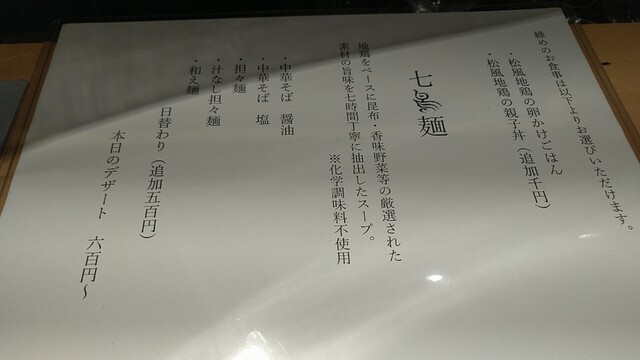 締めのお食事は以下よりお選びいただけます。
・松風地鶏の卵かけごはん
・松風地鶏の親子丼（追加千円）
七鳥麺
地鶏をベースに昆布・香味野菜等の厳選された
素材の旨味を七時間丁寧に抽出したスープ。
※化学調味料不使用
・中華そば　醤油
・中華そば　塩
・担々麺
・汁なし担々麺
・和え麺
日替わり（追加五百円）
本日のデザート　六百円～